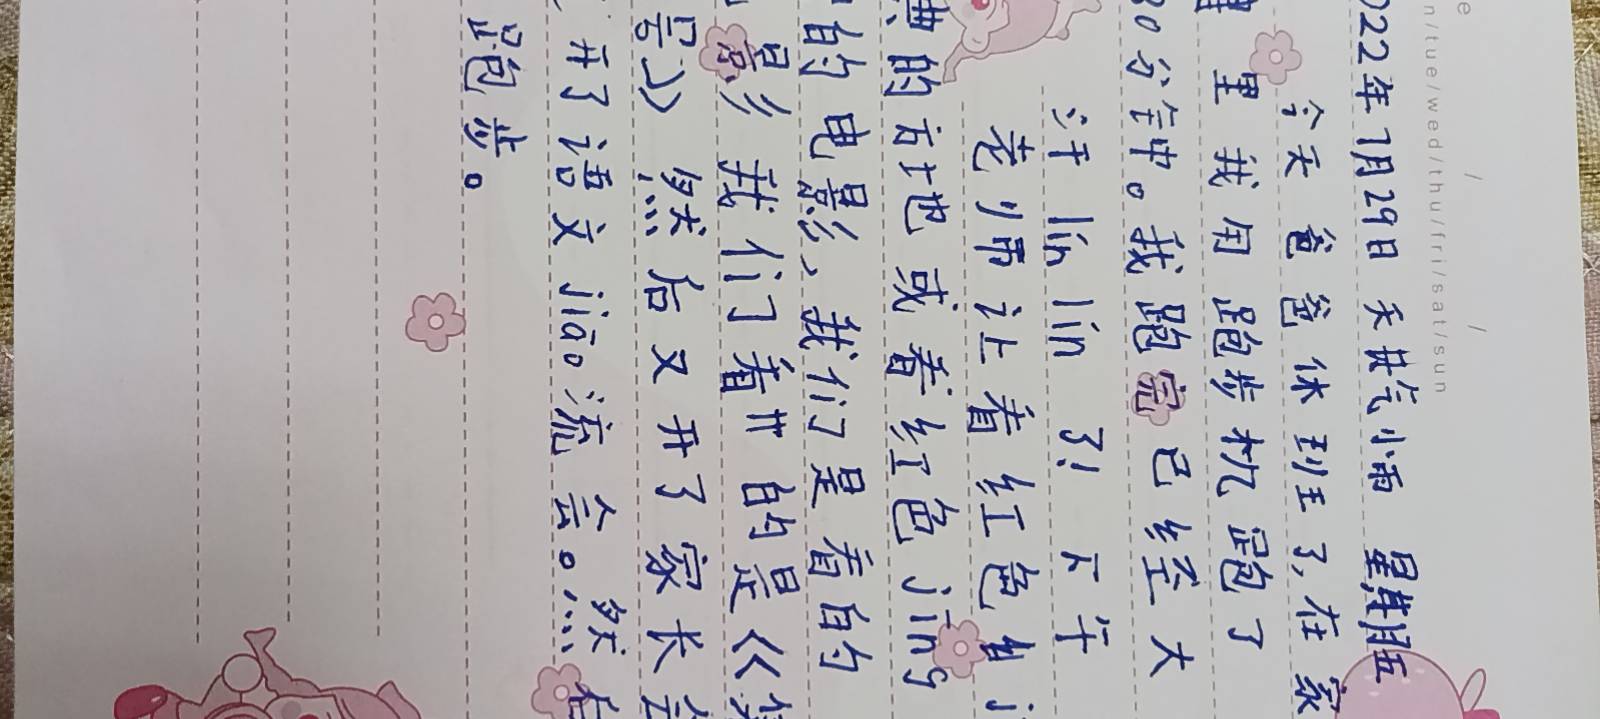 n/tue/wed/thu/fri/sat/sun
022年7月29日 天气小雨 星期五
今天 爸爸休班了,在家
里我用跑步机跑了
30分钟。我跑完已经大
汗 lin lin 了! 下午
老师让看红色
典的古地或看红色 jing
的电影、我们是看的
影 我们看的是《
然后又开了家长会
开了语文 jiāo 流会。然后
跑步。